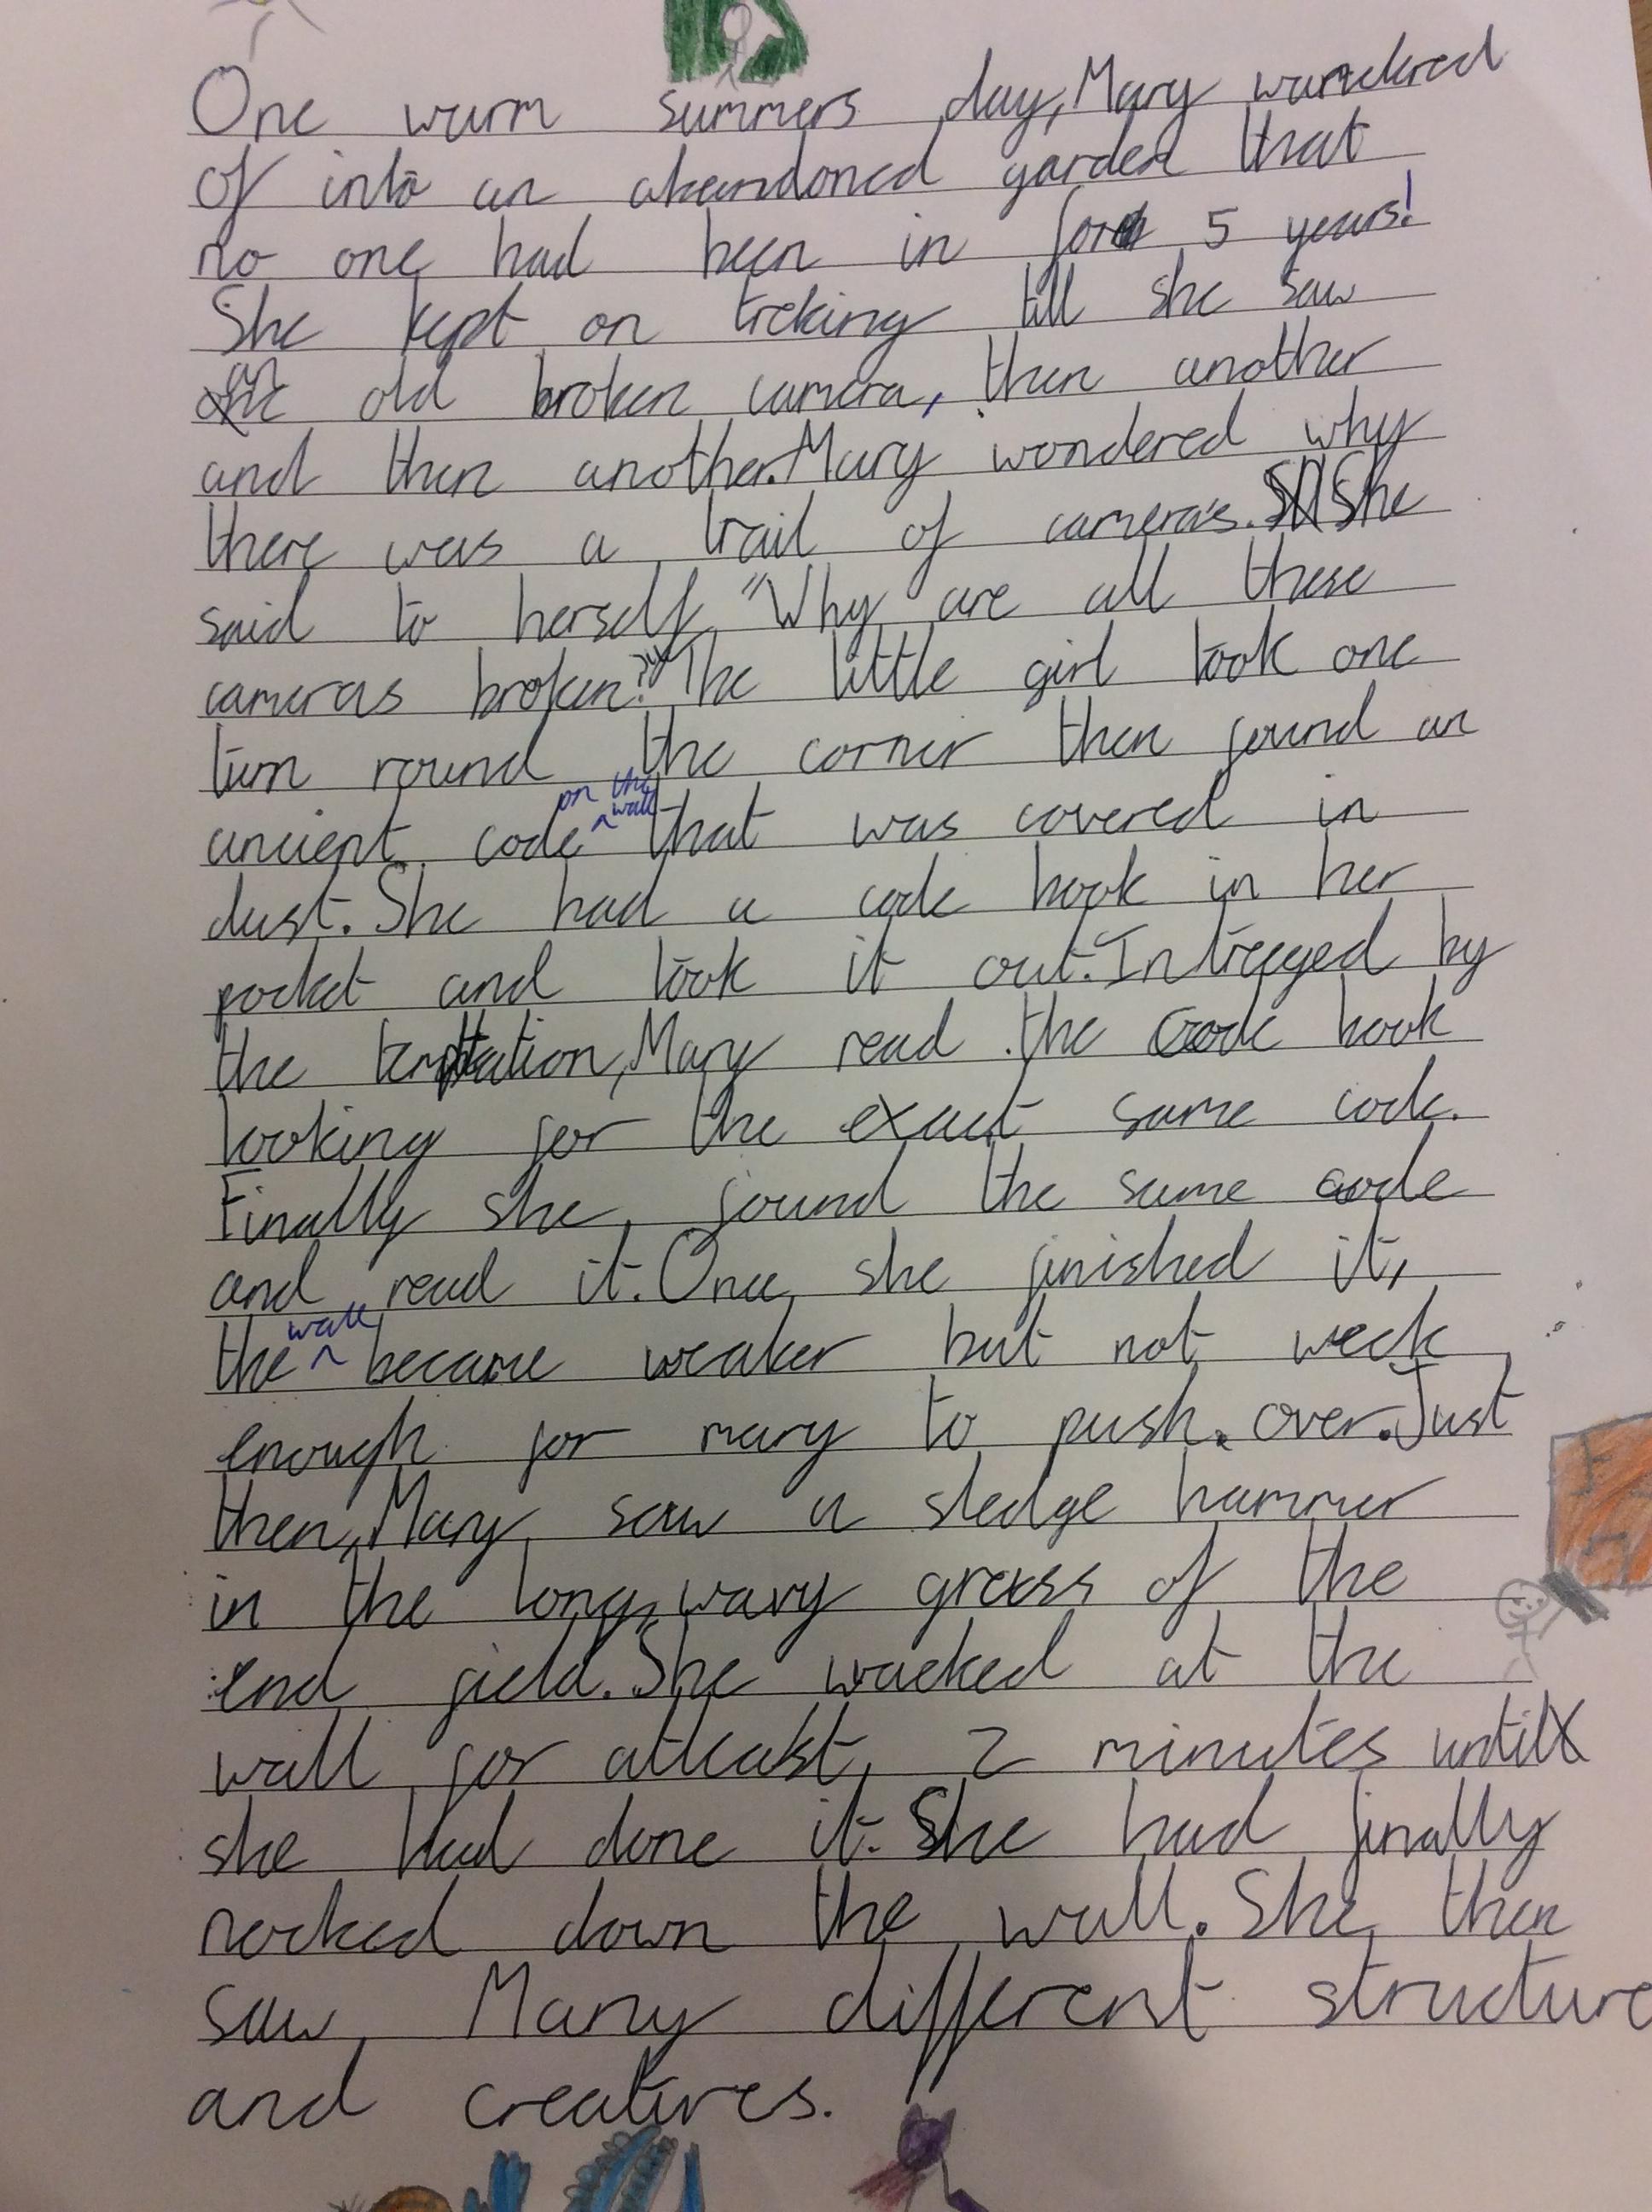 One warm summers day, Mary wandered
of into an abandoned garden that
no one had been in for 5 years!
She kept on treking till she saw
an old broken camera, then another
and then another. Mary wondered why
there was a trail of camera's. She
said to herself "Why are all these
cameras broken?" The little girl took one
turn round the corner then found an
ancient code on the wall that was covered in
dust. She had a code book in her
pocket and took it out. Intreged by
the temptation, Mary read the code book
looking for the exact same code.
Finally she found the same code
and read it. Once she finished it,
the wall became weaker but not week
enough for mary to push over. Just
then, Mary saw a sledge hammer
in the long, wavy grass of the
end field. She wacked at the
wall for atleast 2 minutes until
she had done it. She had finally
nocked down the wall. She then
saw Many different structure
and creatures.